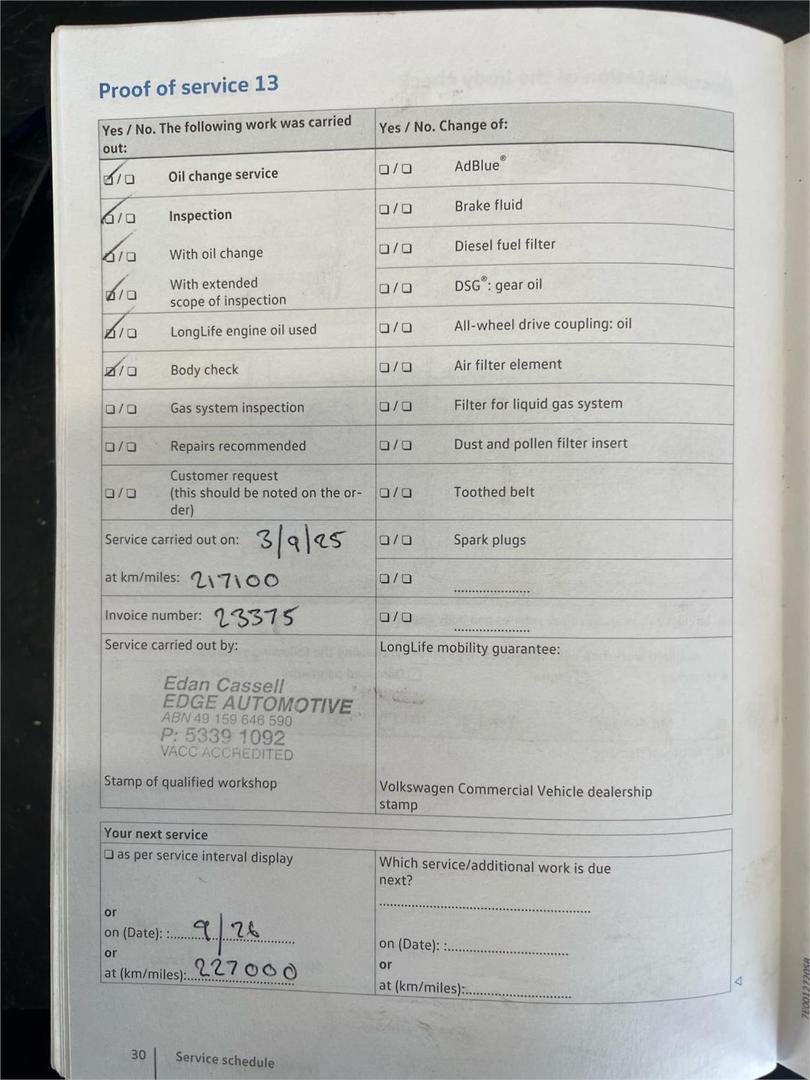 Proof of service 13
Yes / No. The following work was carried
out:
☑/❏ Oil change service
☑/❏ Inspection
☑/❏ With oil change
☑/❏ With extended
scope of inspection
☑/❏ LongLife engine oil used
☑/❏ Body check
❏/❏ Gas system inspection
❏/❏ Repairs recommended
❏/❏ Customer request
(this should be noted on the or-
der)
Service carried out on: 3/9/25
at km/miles: 217100
Invoice number: 23375
Service carried out by:
Edan Cassell
EDGE AUTOMOTIVE
ABN 49 159 646 590
P: 5339 1092
VACC ACCREDITED
Stamp of qualified workshop
Yes / No. Change of:
❏/❏ AdBlue®
❏/❏ Brake fluid
❏/❏ Diesel fuel filter
❏/❏ DSG®: gear oil
❏/❏ All-wheel drive coupling: oil
❏/❏ Air filter element
❏/❏ Filter for liquid gas system
❏/❏ Dust and pollen filter insert
❏/❏ Toothed belt
❏/❏ Spark plugs
❏/❏ .....................
❏/❏ .....................
LongLife mobility guarantee:
Volkswagen Commercial Vehicle dealership
stamp
Your next service
❏ as per service interval display
or
on (Date): : 9/26
or
at (km/miles): 227000
Which service/additional work is due
next?
on (Date): :
or
at (km/miles):
30 Service schedule